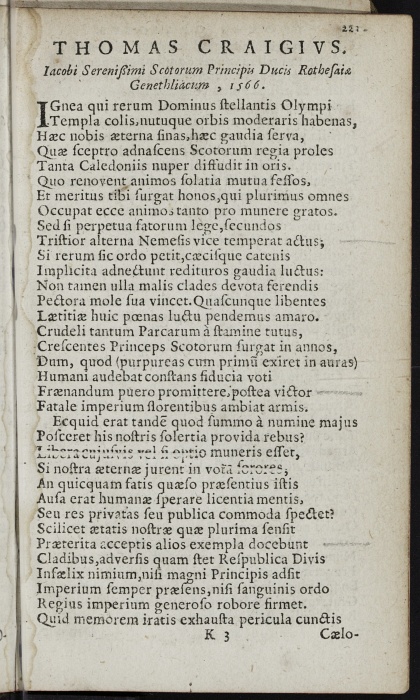 221.
THOMAS CRAIGIVS.
Iacobi Sereniſſimi Scotorum Principis Ducis Rotheſaiæ
Genethliacum, 1566.
IGnea qui rerum Dominus ſtellantis Olympi
Templa colis, nutuque orbis moderaris habenas,
Hæc nobis æterna ſinas, hæc gaudia ſerva,
Quæ ſceptro adnaſcens Scotorum regia proles
Tanta Caledoniis nuper diffudit in oris.
Quo renovent animos ſolatia mutua feſſos,
Et meritus tibi ſurgat honos, qui plurimus omnes
Occupat ecce animos tanto pro munere gratos.
Sed ſi perpetua fatorum lege, ſecundos
Triſtior alterna Nemeſis vice temperat actus;
Si rerum ſic ordo petit, cæciſque catenis
Implicita adnectunt redituros gaudia luctus:
Non tamen ulla malis clades devota ferendis
Pectora mole ſua vincet. Quaſcunque libentes
Lætitiæ huic pœnas luctu pendemus amaro.
Crudeli tantum Parcarum à ſtamine tutus,
Creſcentes Princeps Scotorum ſurgat in annos,
Dum, quod (purpureas cum primũ exiret in auras)
Humani audebat conſtans fiducia voti
Frænandum puero promittere, poſtea victor
Fatale imperium florentibus ambiat armis.
Ecquid erat tandẽ quod ſummo à numine majus
Poſceret his noſtris ſolertia provida rebus?
Libera cujuſvis vel ſi optio muneris eſſet,
Si noſtra æternæ jurent in vota ſorores,
An quicquam fatis quæſo præſentius iſtis
Auſa erat humanæ ſperare licentia mentis,
Seu res privatas ſeu publica commoda ſpectet?
Scilicet ætatis noſtræ quæ plurima ſenſit
Præterita acceptis alios exempla docebunt
Cladibus, adverſis quam ſtet Reſpublica Divis
Infælix nimium, niſi magni Principis adſit
Imperium ſemper præſens, niſi ſanguinis ordo
Regius imperium generoſo robore firmet.
Quid memorem iratis exhauſta pericula cunctis
K 3 Cælo-